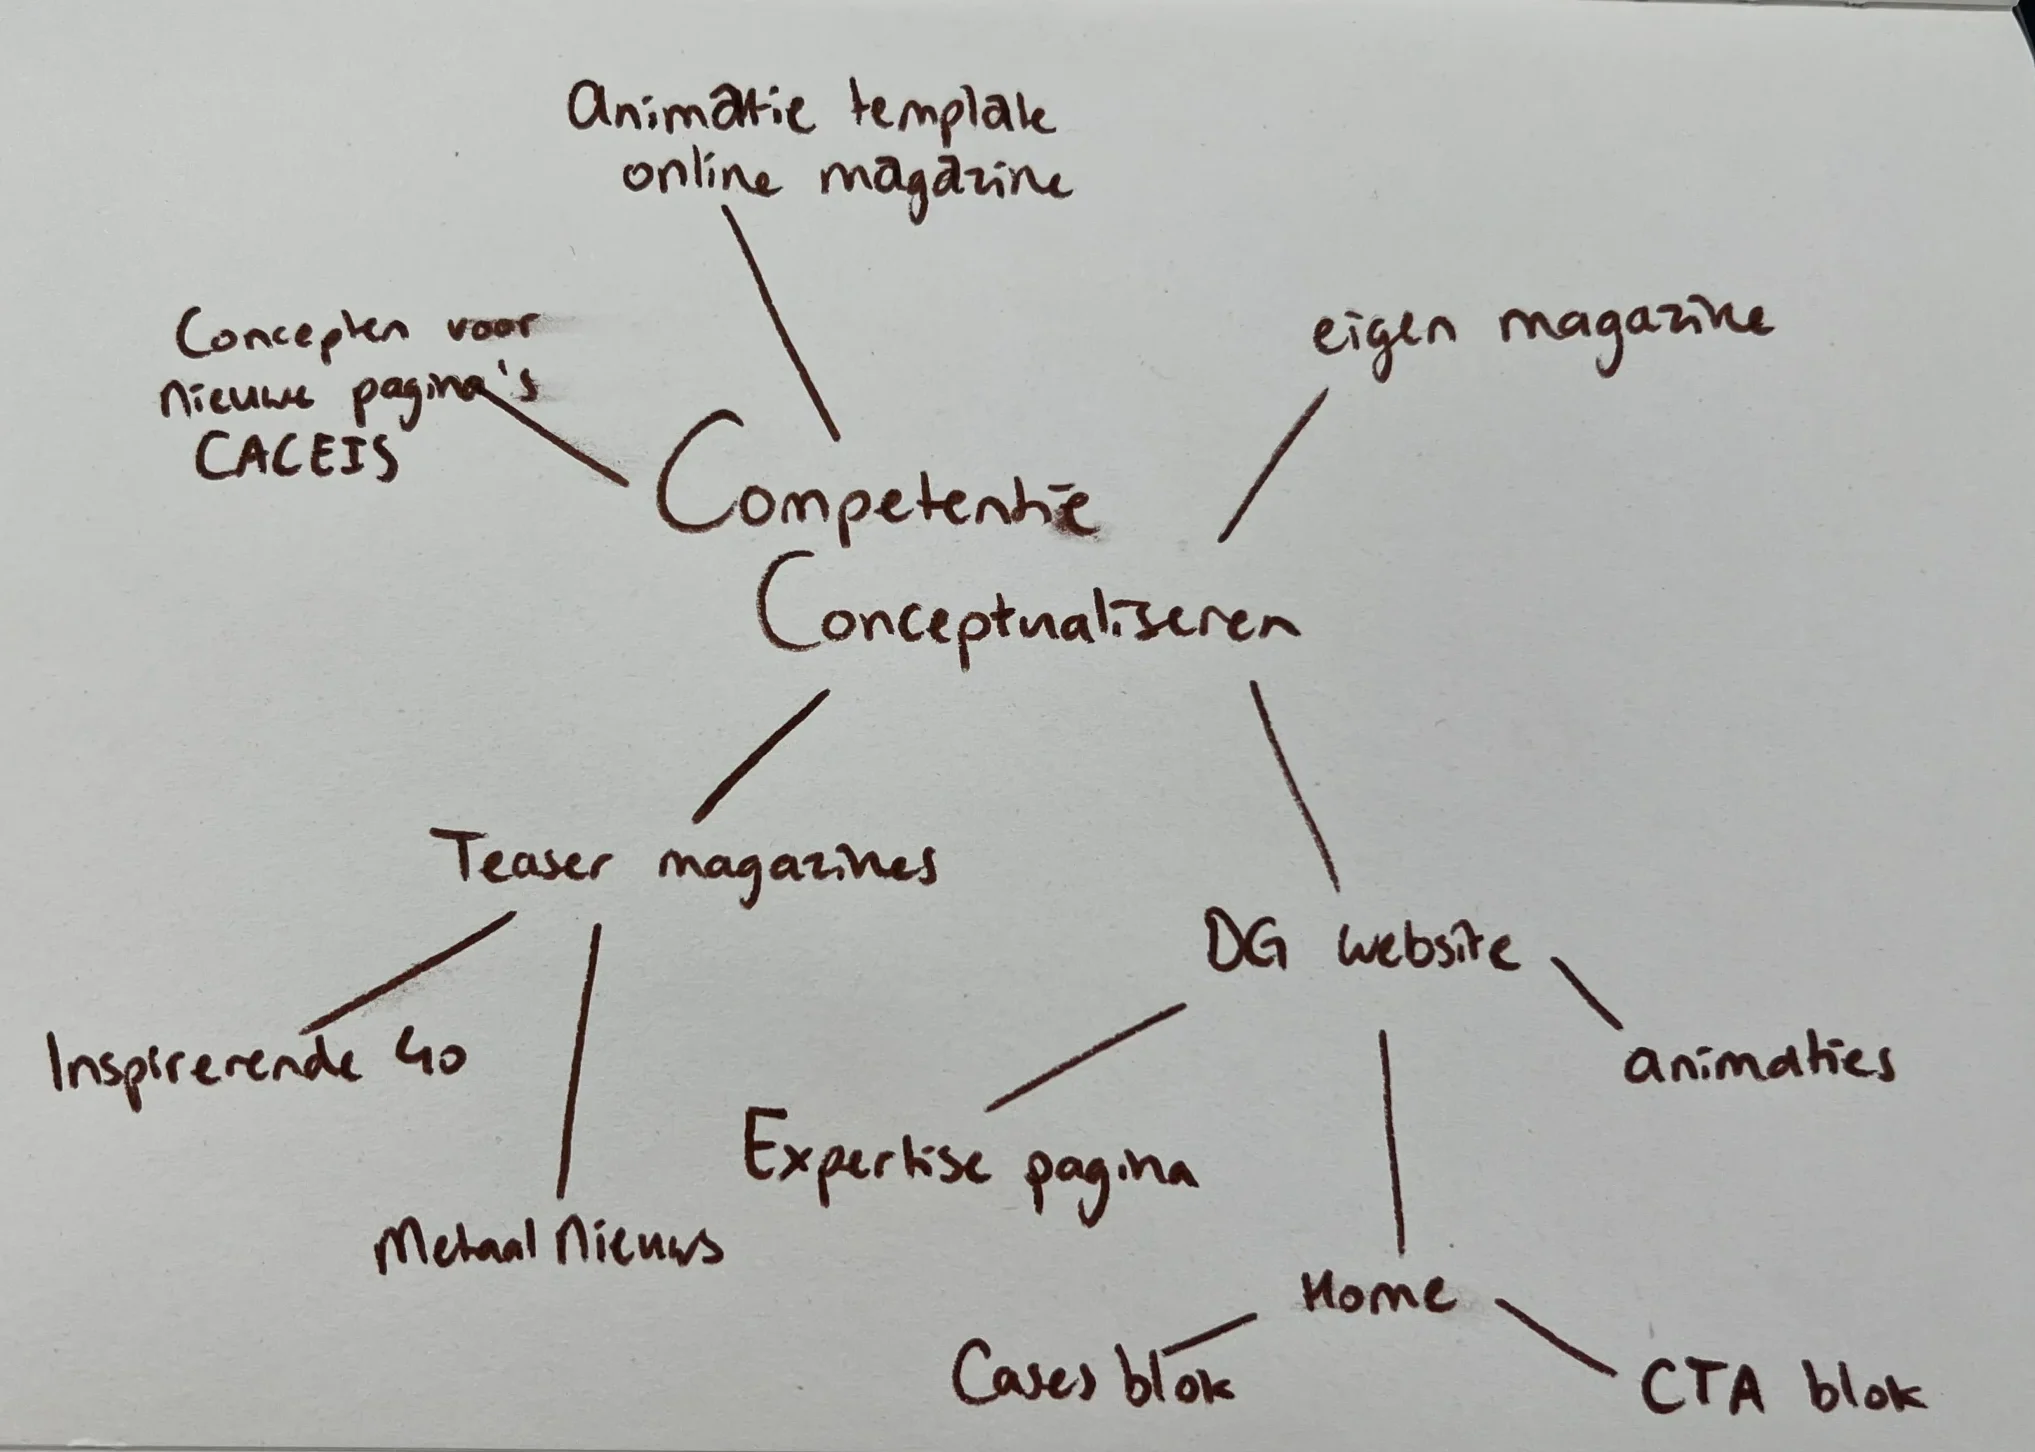 Animatie template
online magazine
Concepten voor
nieuwe pagina's
CACEIS
eigen magazine
Competentie
Conceptualiseren
Teaser magazines
DG website
Inspirerende 40
animaties
Expertise pagina
Metaal Nieuws
Home
Cases blok
CTA blok